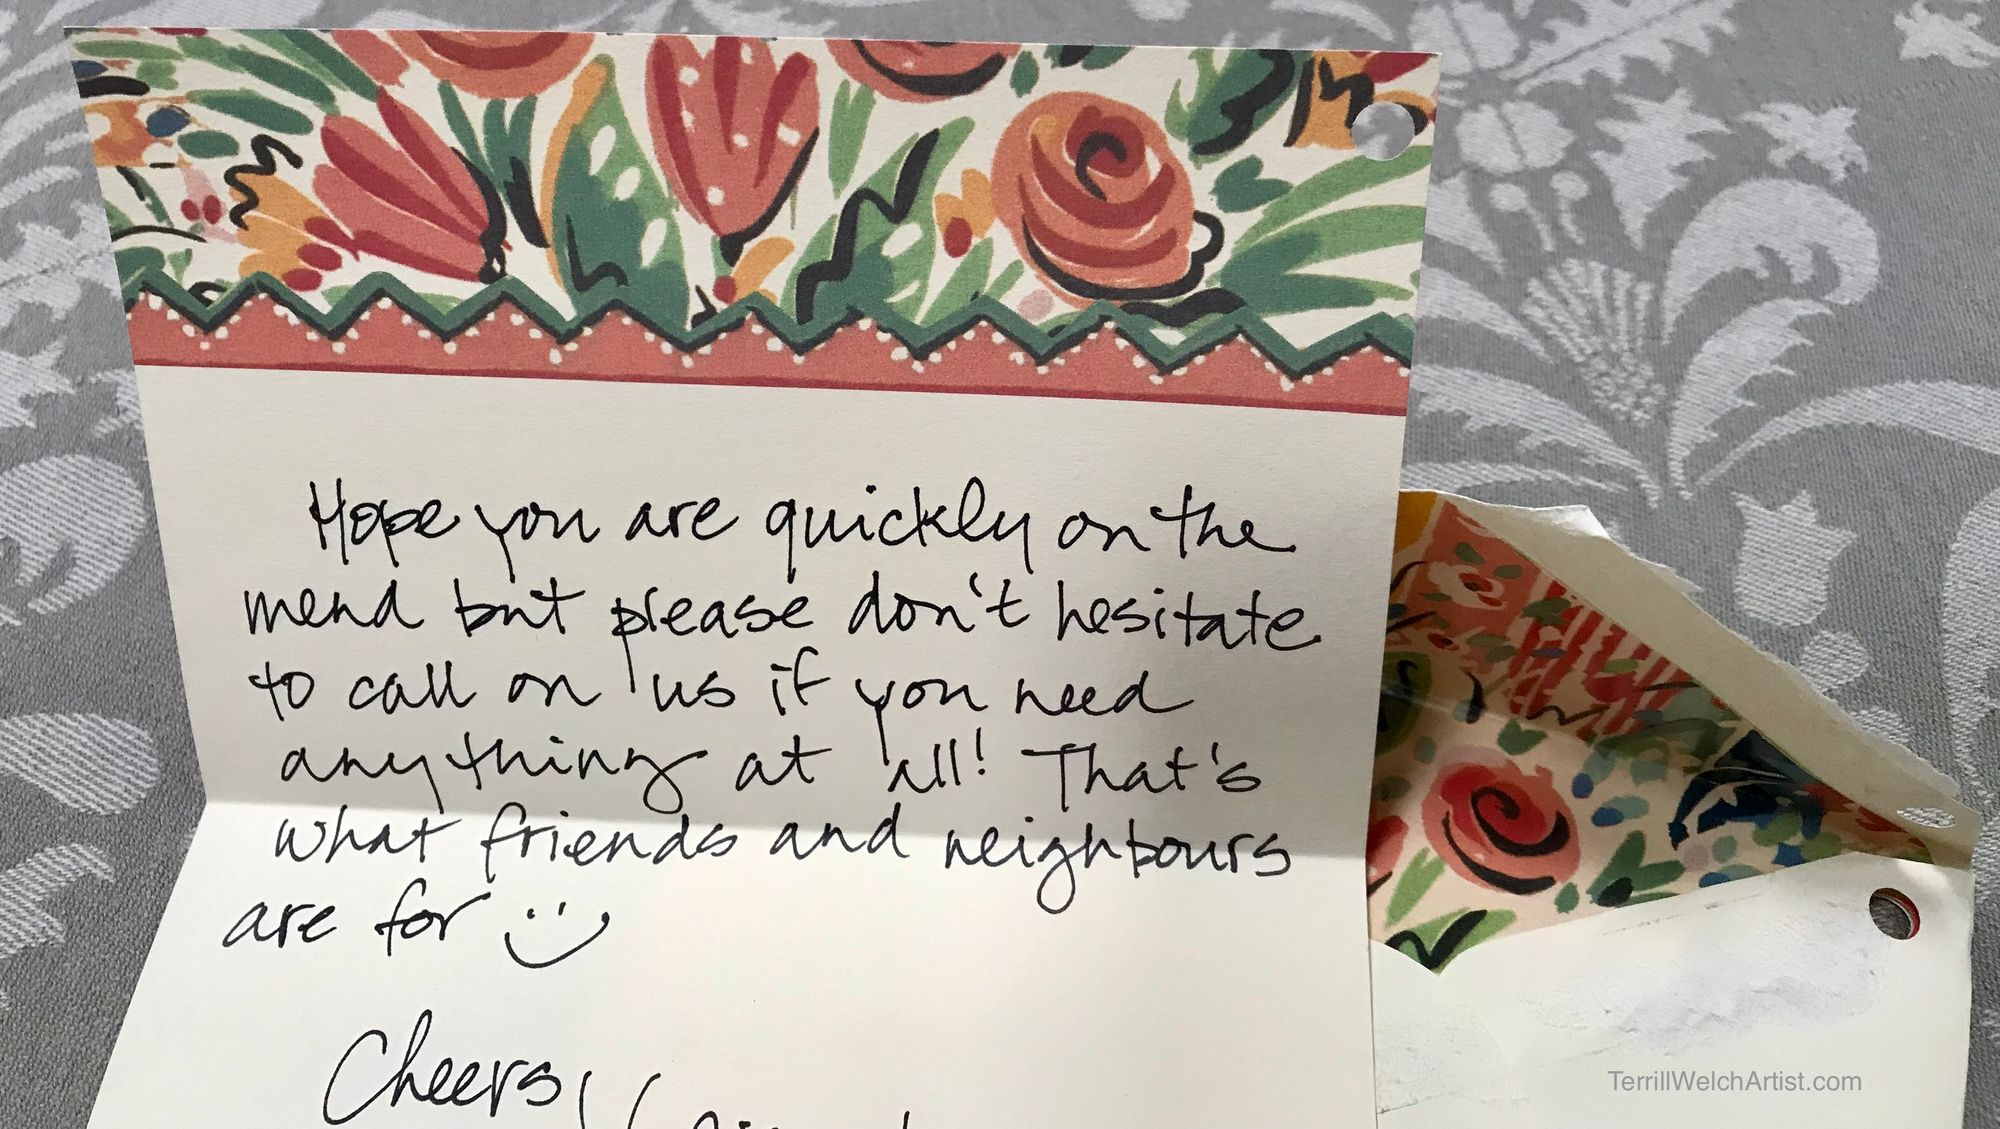 Hope you are quickly on the
mend but please don't hesitate
to call on us if you need
anything at all! That's
what friends and neighbours
are for
Cheers
TerrillWelchArtist.com